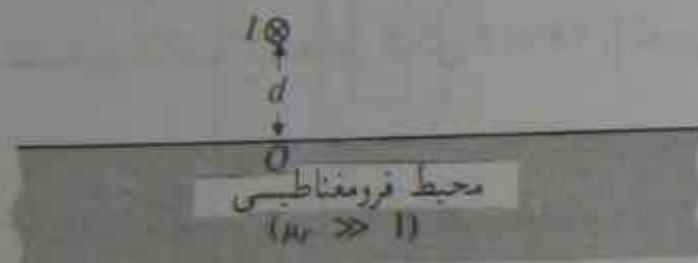 I
d
O
محیط فرومغناطیسی
(μr >> 1)